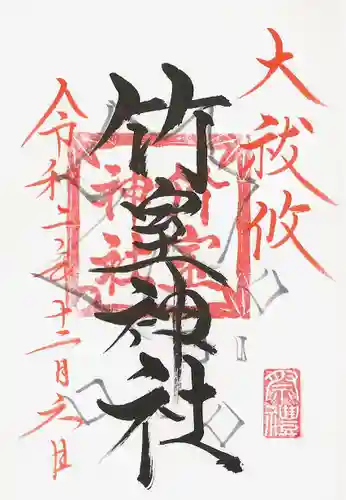 大祓攸
竹室神社
令和二年十二月六日
竹室
神社
祭禮